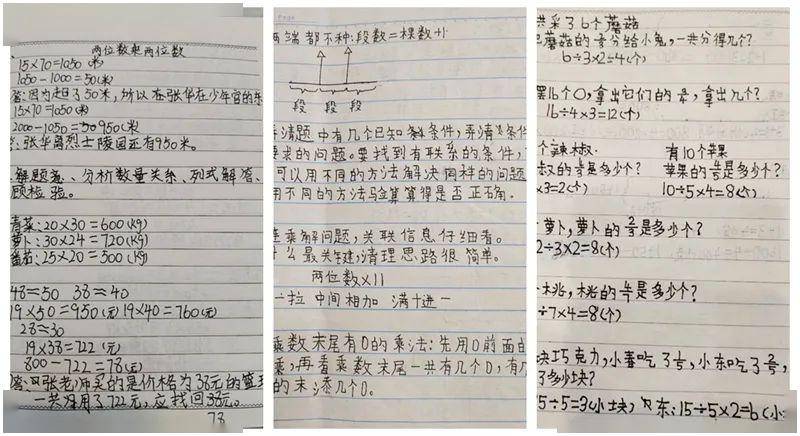 两位数乘两位数
15×70=1050(米)
1050-1000=50(米)
答:因为超了50米,所以在张华在少年宫的东
15×70=1050(米)
2000-1050=950(米)
张华离烈士陵园还有950米。
解题、分析数量关系、列式解答、
顾检验。
青菜:20×30=600(kg)
萝卜:30×24=720(kg)
番茄:25×20=500(kg)
48≈50 38≈40
19×50=950(元) 19×40=760(元)
28≈30
19×38=722(元)
800-722=78(元)
答:张老师买的是价格为38元的篮球
一共用了722元,应找回38元。
78
两端都不种:段数=棵数+1
段 段 段
清题中有几个已知条件,弄清条件
要求的问题。要找到有联系的条件,
可以用不同的方法解决同样的问题
用不同的方法验算算得是否正确.
连乘解问题,关联信息仔细看。
什么最关键,清理思路很简单。
两位数×11
一拉 中间相加 满十进一
乘数末尾有0的乘法:先用0前面的
乘,再看乘数末尾一共有几个0,有几
的末添几个0。
共采了6个蘑菇
蘑菇的分给小兔,一共分得几个?
6÷3×2=4(个)
摆16个○,拿出它们的,拿出几个?
16÷4×3=12(个)
个辣椒. 有10个苹果
椒的是多少个? 苹果的是多少个?
×3=2(个) 10÷5×4=8(个)
萝卜,萝卜的是多少个?
2÷3×2=8(个)
桃,桃的是多少个?
÷7×4=8(个)
块巧克力,小春吃了,小东吃了,
了多少块?
5÷5=3(小块) 东:15÷5×2=6(小